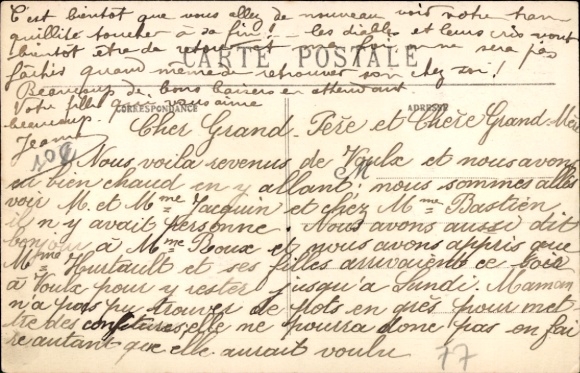 C'est bientôt que vous allez de nouveau voir votre tran
quillité toucher à sa fin! - les diables et leurs cris vont
bientôt être de retour et ma foi on ne sera pas
fâchés quand même de retrouver son chez soi!
CARTE POSTALE
Beaucoup de bons baisers en attendant
Votre fille qui vous aime
beaucoup.
Jeanne
CORRESPONDANCE
ADRESSE
Cher Grand-Père et Chère Grand-Mère
10c
Nous voila revenus de Voulx et nous avons
eu bien chaud en y allant; nous sommes allés
M
voir M. et Mme Jacquin et chez Mme Bastien
il n'y avait personne. Nous avons aussi dit
bonjour à Mme Roux et nous avons appris que
Mme Hurtault et ses filles arrivaient ce soir
à Voulx pour y rester jusqu'a Lundi. Maman
n'a pas pu trouver de pots en grès pour met-
tre des confitures, elle ne pourra donc pas en fai
re autant que elle aurait voulu
77